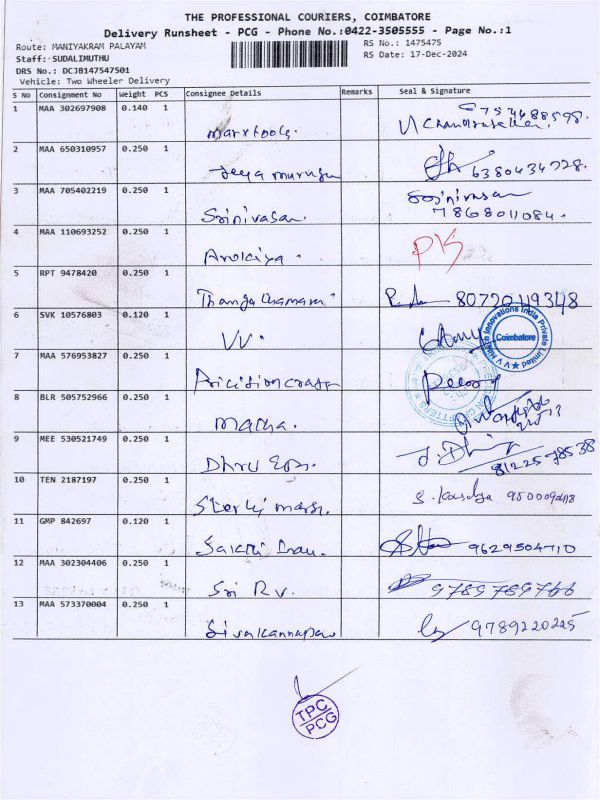 THE PROFESSIONAL COURIERS, COIMBATORE
Delivery Runsheet - PCG - Phone No.:0422-3505555 - Page No.:1
Route: MANIYAKRAM PALAYAM
RS No.: 1475475
Staff: SUDALIMUTHU
RS Date: 17-Dec-2024
DRS No.: DCJB147547501
Vehicle: Two Wheeler Delivery
S No Consignment No Weight PCS Consignee Details Remarks Seal & Signature
1 MAA 302697908 0.140 1
2 MAA 650310957 0.250 1 Jeya murugan 6380434728.
3 MAA 705402219 0.250 1 Srinivasan. Srinivasan
7868011084.
4 MAA 110693252 0.250 1 Arokiya. PK
5 RPT 9478420 0.250 1 8072049348
6 SVK 10576803 0.120 1 VV.
V V Hitech Innovations India Private Limited
Coimbatore
7 MAA 576953827 0.250 1
8 BLR 505752966 0.250 1
9 MEE 530521749 0.250 1 8122578538
10 TEN 2187197 0.250 1 9500092118
11 GMP 842697 0.120 1 9629504710
12 MAA 302304406 0.250 1 Sri R.V. 9789789766
13 MAA 573370004 0.250 1 9789220225
TPC
PCG